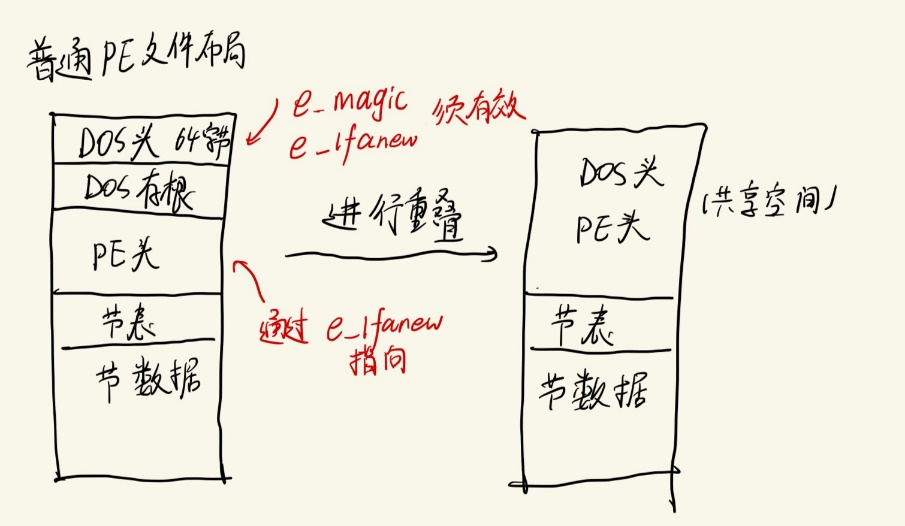 普通PE文件布局
DOS头 64字节
DOS存根
PE头
节表
节数据
e_magic
e_lfanew
须有效
进行重叠
通过 e_lfanew
指向
DOS头
PE头
(共享空间)
节表
节数据